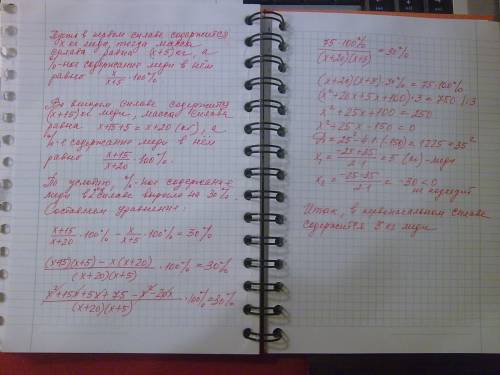 Пусть в первом сплаве содержится
x кг меди, тогда масса
сплава равна (x+5) кг, а
%-ное содержание меди в нём
равно x/(x+5) · 100%.
Во втором сплаве содержится
(x+15) кг меди, масса сплава
равна x+15+5 = x+20 (кг), а
%-е содержание меди в нём
равно (x+15)/(x+20) · 100%.
По условию, %-ное содержание
меди в 2 сплаве на 30%.
Составляем уравнение:
(x+15)/(x+20) · 100% - x/(x+5) · 100% = 30%
((x+15)(x+5) - x(x+20))/((x+20)(x+5)) · 100% = 30%
(x²+15x+5x+75-x²-20x)/((x+20)(x+5)) · 100% = 30%
75·100%/((x+20)(x+5)) = 30%
(x+20)(x+5)·30% = 75·100%
(x²+20x+5x+100)·3 = 750 |:3
x²+25x+100 = 250
x²+25x-150 = 0
D = 25²-4·1·(-150) = 1225 = 35²
x₁ = (-25+35)/(2·1) = 5 (кг) - меди
x₂ = (-25-35)/(2·1) = -30 < 0
не подходит
Итак, в первоначальном сплаве
содержится 5 кг меди.